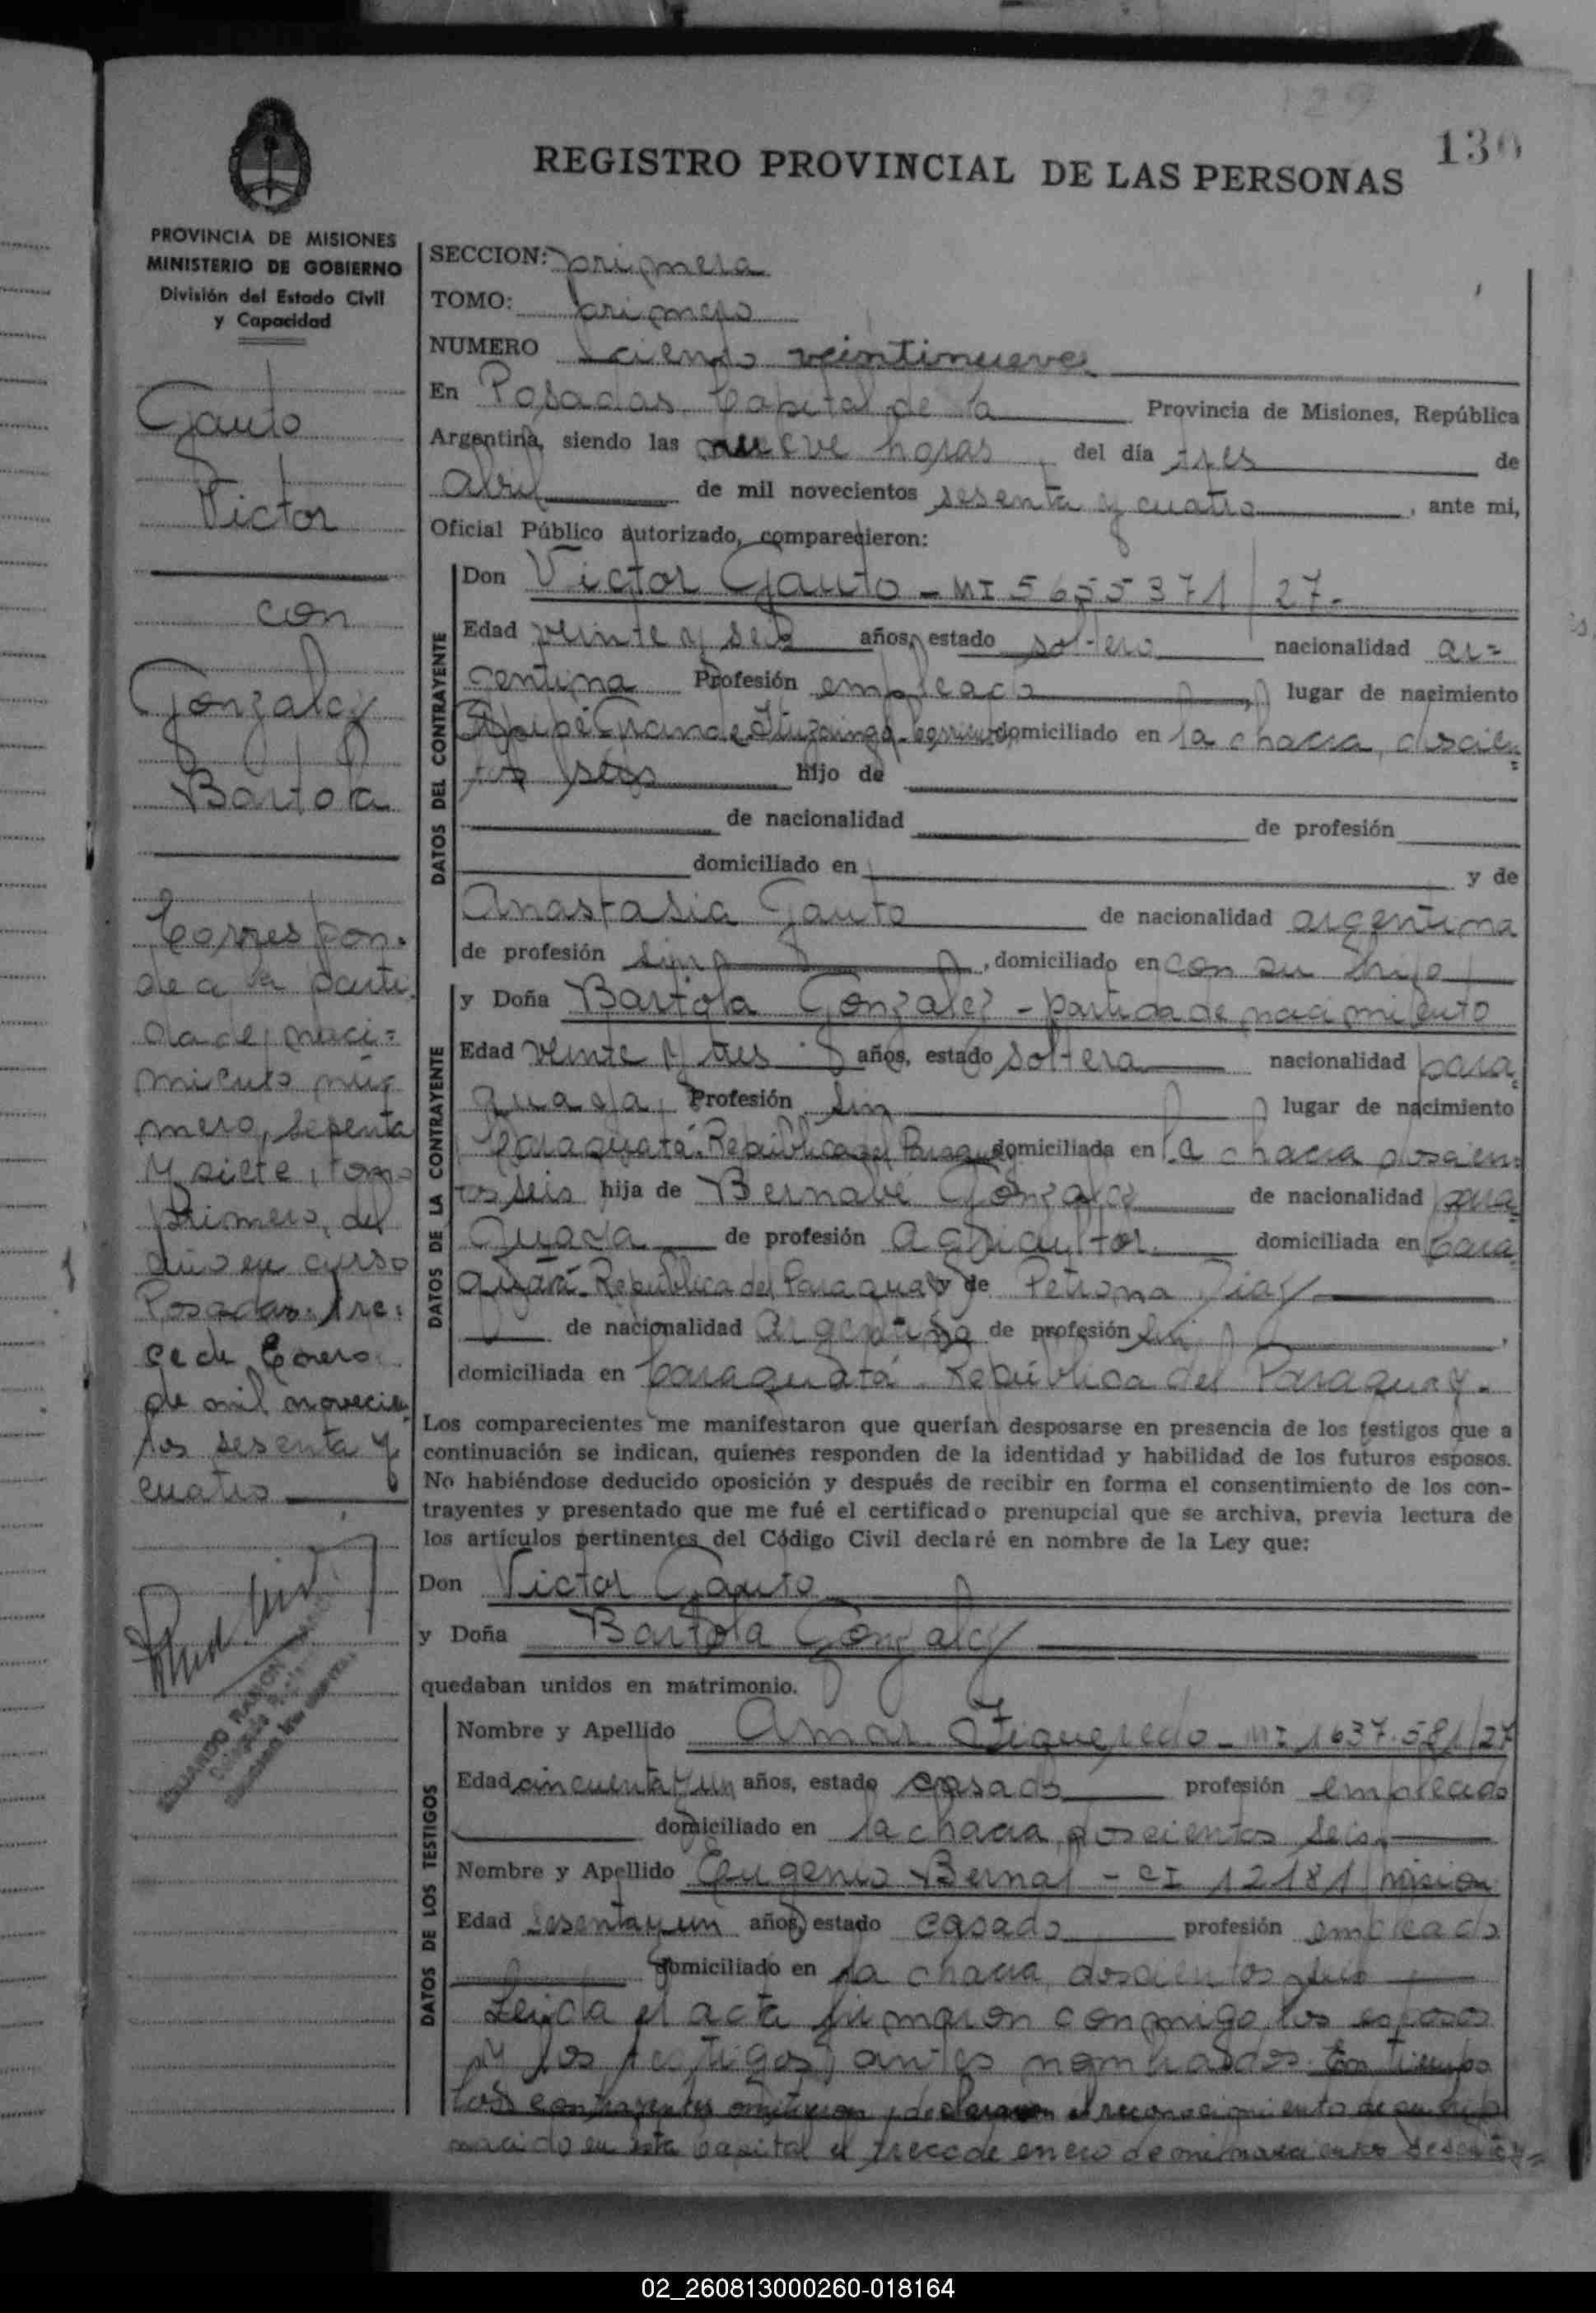 129
130
REGISTRO PROVINCIAL DE LAS PERSONAS
PROVINCIA DE MISIONES
MINISTERIO DE GOBIERNO
División del Estado Civil
y Capacidad
Gauto
Victor
con
Gonzalez
Bartola
Correspon-
de a la parti
da de naci=
miento nú-
mero, setenta
y siete, tomo
primero, del
año en curso
Posadas: Tre:
ce de Enero
de mil novecien
tos sesenta y
cuatro
EDUARDO RAMON
SECCION: primera
TOMO: primero
NUMERO ciento veintinueve
En Posadas, Capital de la Provincia de Misiones, República
Argentina, siendo las nueve horas, del día tres de
Abril de mil novecientos sesenta y cuatro, ante mi,
Oficial Público autorizado, comparecieron:
DATOS DEL CONTRAYENTE
Don Victor Gauto - MI 5655371/27-
Edad veinte y seis años, estado soltero nacionalidad ar=
gentina Profesión empleado, lugar de nacimiento
Apipé Grande Ituzaingó-Corrientes domiciliado en la chacra, doscien=
tos seis hijo de
de nacionalidad de profesión
domiciliado en y de
Anastasia Gauto de nacionalidad argentina
de profesión sin, domiciliado en con su hijo
DATOS DE LA CONTRAYENTE
y Doña Bartola Gonzalez - partida de nacimiento
Edad veinte y tres años, estado soltera nacionalidad para
guaya, Profesión sin lugar de nacimiento
Caraguatá-República del Paraguay domiciliada en la chacra doscien=
tos seis hija de Bernave Gonzalez de nacionalidad para=
guaya de profesión Agricultor. domiciliada en Cara
guatá-República del Paraguay y de Petrona Diaz
de nacionalidad Argentina de profesión sin,
domiciliada en Caraguatá - República del Paraguay.
Los comparecientes me manifestaron que querían desposarse en presencia de los testigos que a
continuación se indican, quienes responden de la identidad y habilidad de los futuros esposos.
No habiéndose deducido oposición y después de recibir en forma el consentimiento de los con-
trayentes y presentado que me fué el certificado prenupcial que se archiva, previa lectura de
los artículos pertinentes del Código Civil declaré en nombre de la Ley que:
Don Victor Gauto
y Doña Bartola Gonzalez
quedaban unidos en matrimonio.
DATOS DE LOS TESTIGOS
Nombre y Apellido Amar Figueredo - MI 1637.581/27
Edad cincuenta y un años, estado casado profesión empleado
domiciliado en la chacra, doscientos seis.
Nombre y Apellido Eugenio Bernal - CI 12181 Mision
Edad sesenta y un años, estado casado profesión empleado
domiciliado en la chacra doscientos seis
Leida el acta firmaron conmigo, los esposos
y los testigos antes nombrados. En tiempo
los contrayentes omitieron, declararon el reconocimiento de su hijo
nacido en esta Capital el trece de enero de mil novecientos sesenta y=
02_260813000260-018164